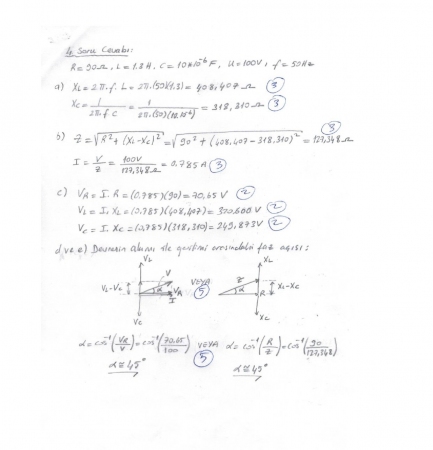 4. Soru Cevabı:
R=90Ω, L=1.3H, C=10x10⁻⁶F, U=100V, f=50Hz
a) XL = 2.π.f.L = 2π.(50)(1.3) = 408,407 Ω (3)
Xc = 1/(2π.f.C) = 1/(2π.(50)(10.10⁻⁶)) = 318,310 Ω (3)
b) Z = √(R² + (XL-Xc)²) = √(90² + (408,407-318,310)²) = 127,348 Ω (3)
I = V/Z = 100V/127,348Ω = 0.785 A (3)
c) VR = I.R = (0.785)(90) = 70,65 V (2)
VL = I.XL = (0.785)(408,407) = 320,600 V (2)
Vc = I.Xc = (0,785)(318,310) = 249,873V (2)
d ve e) Devrenin akımı ile gerilimi arasındaki faz açısı:
VL XL
VL-Vc V α VR I VEYA (5) Z α R XL-Xc
Vc XC
α = cos⁻¹(VR/V) = cos⁻¹(70,65/100) VEYA α = cos⁻¹(R/Z) = cos⁻¹(90/127,348)
(5)
α ≅ 45° α ≅ 45°